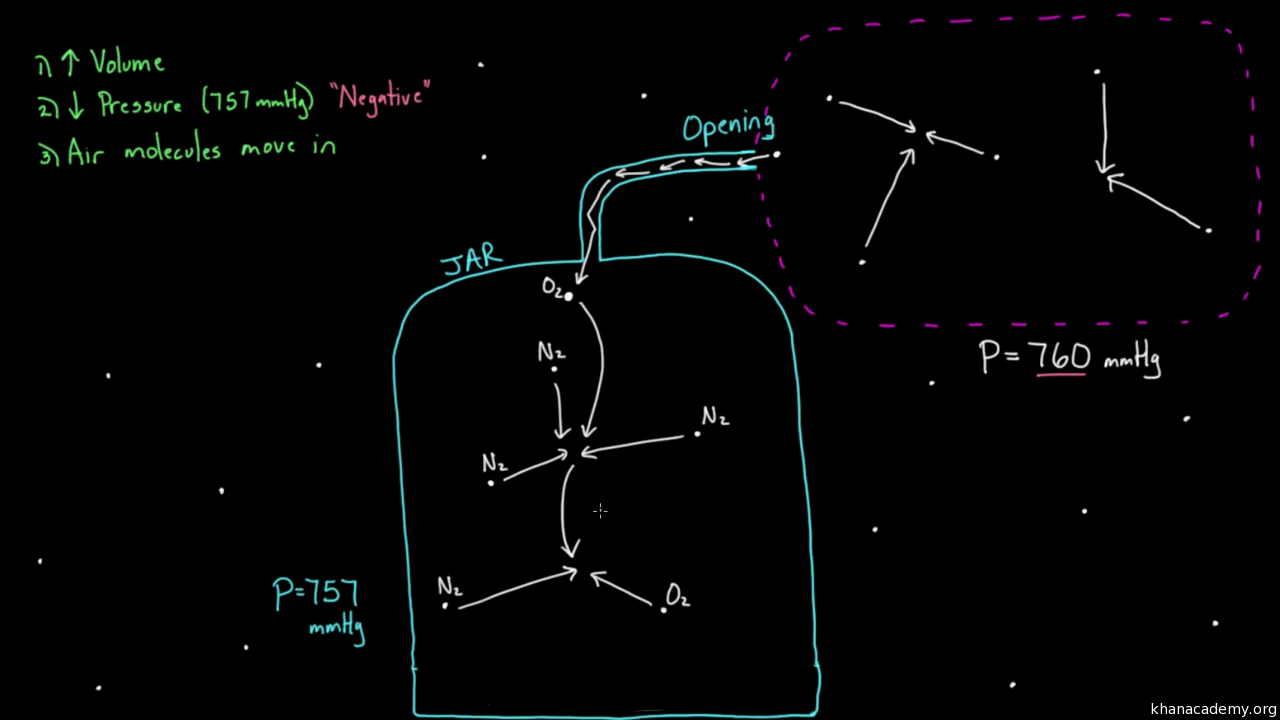 1) ↑ Volume
2) ↓ Pressure (757 mmHg) "Negative"
3) Air molecules move in
Opening
JAR
O₂
N₂
N₂
N₂
N₂
O₂
P = 760 mmHg
P=757
mmHg
khanacademy.org